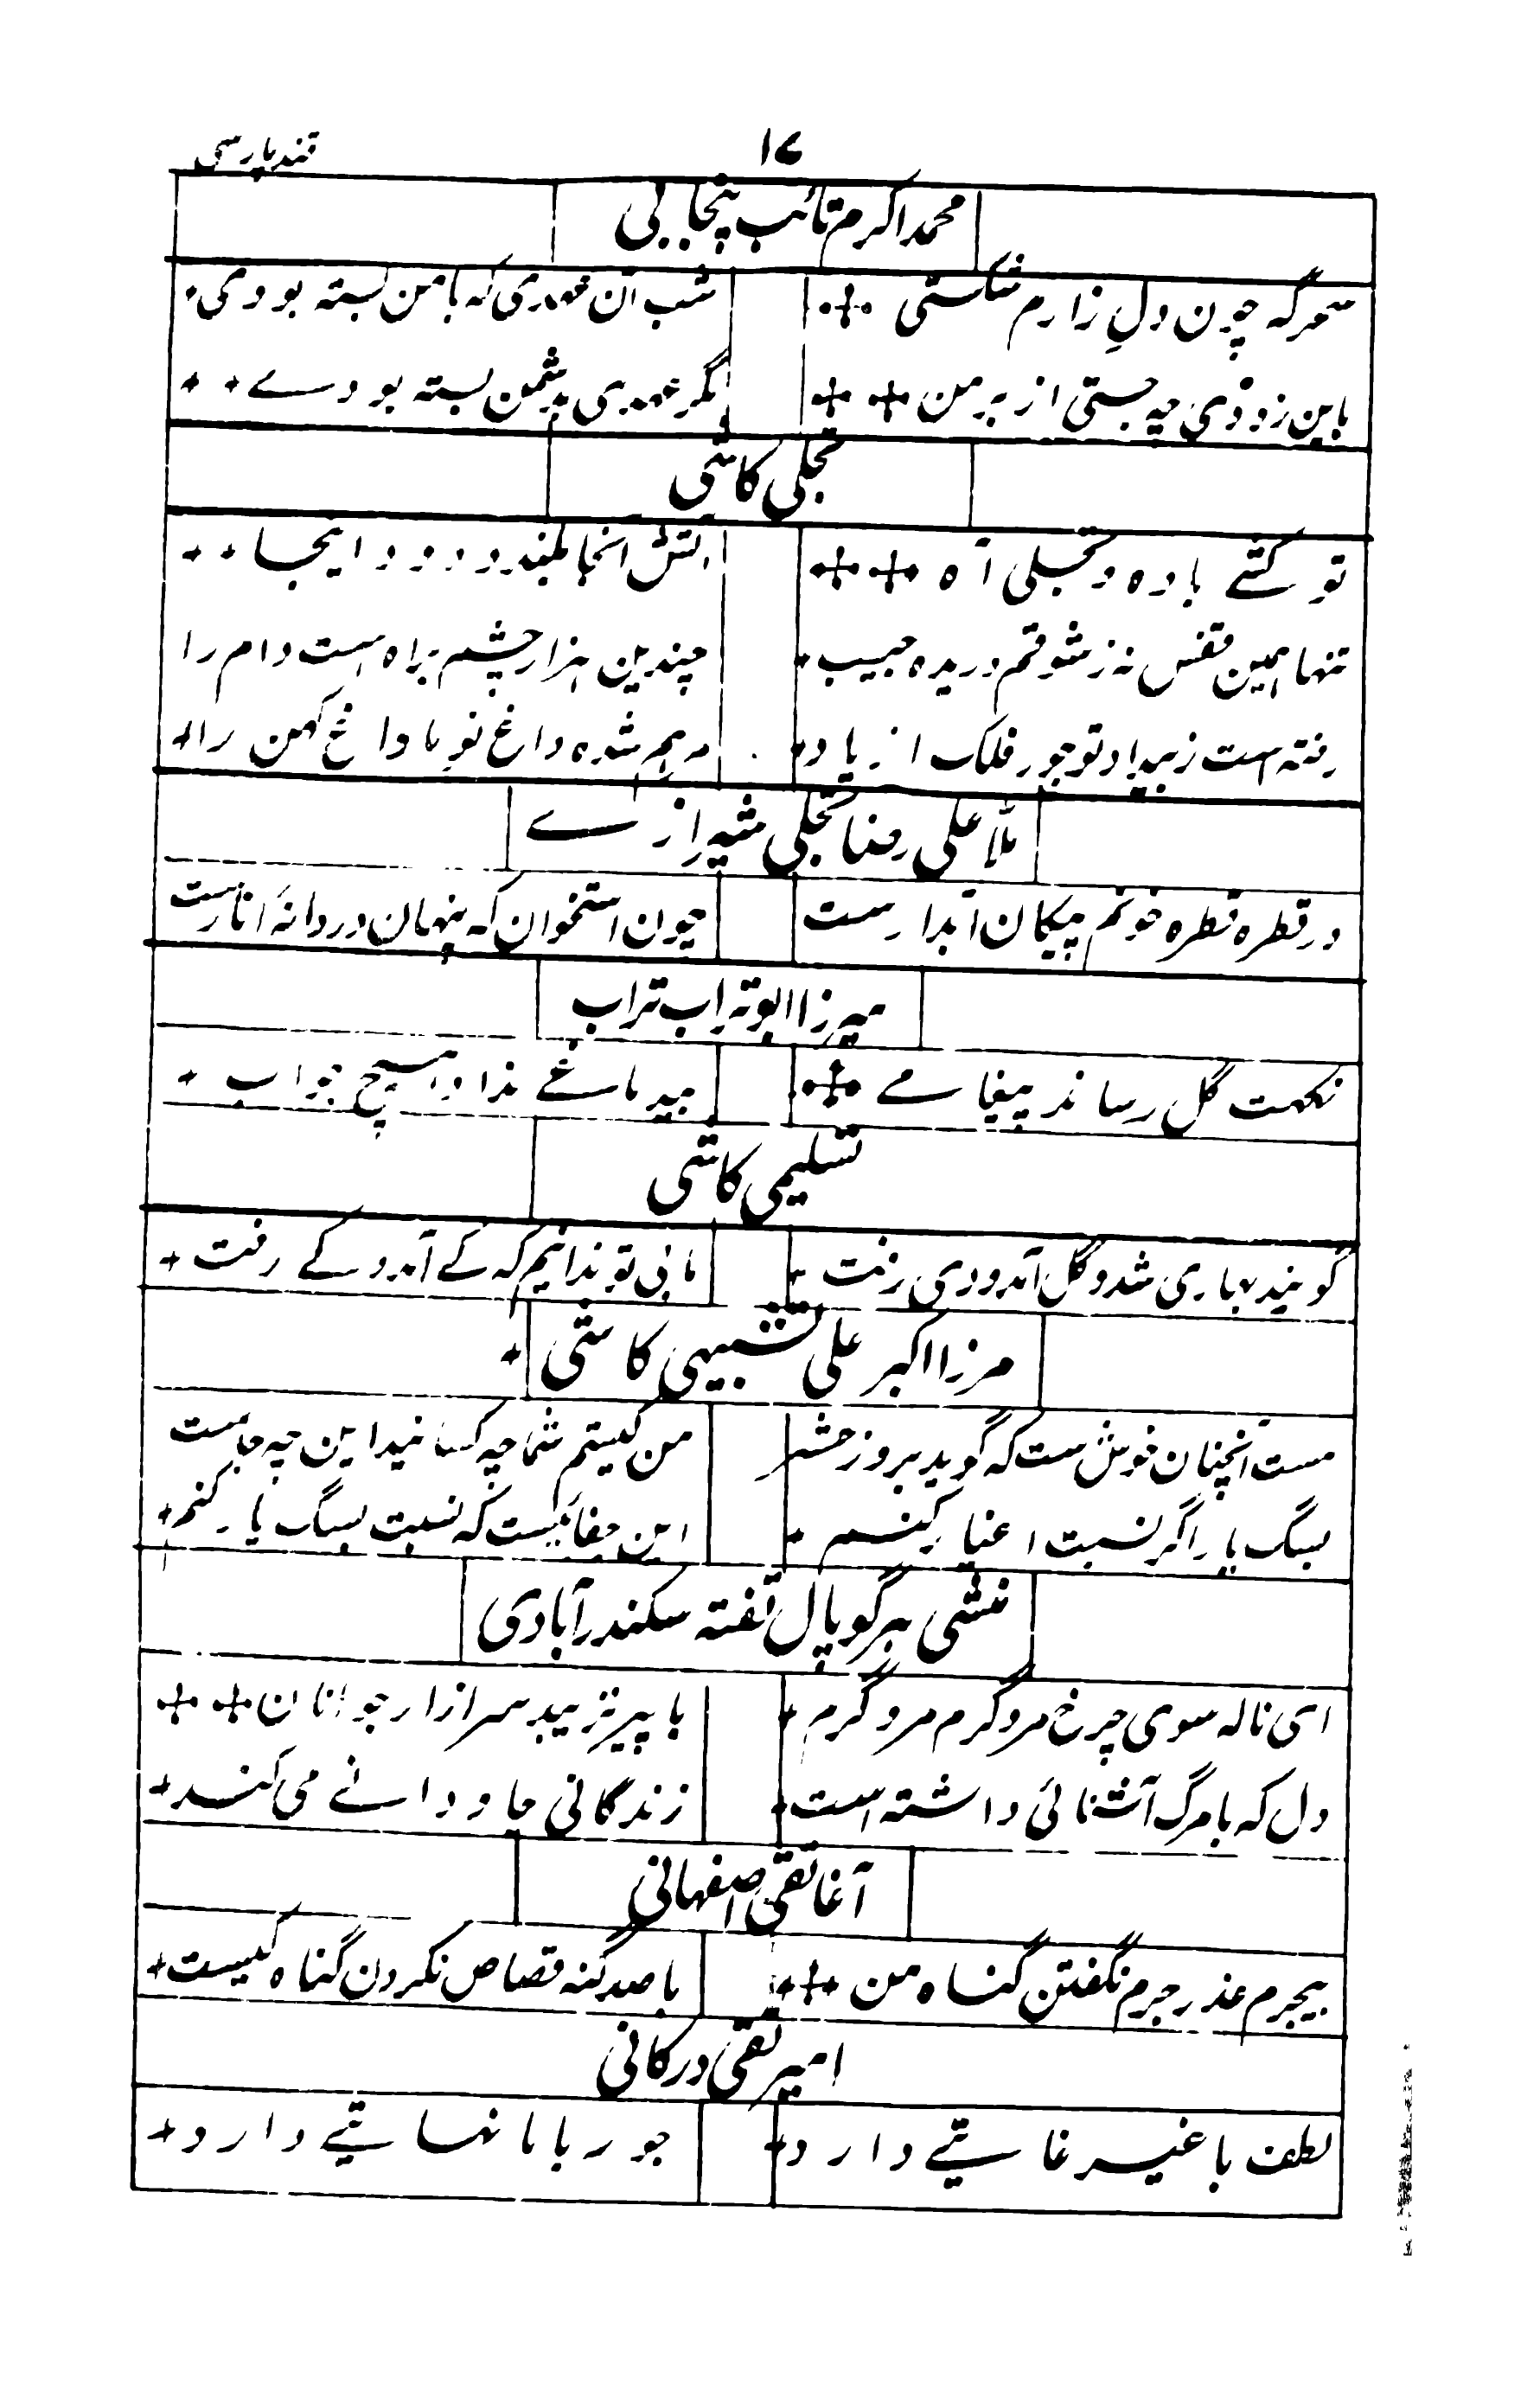 قند پارسی
۱۷
محمد اکرم تائب پنجابی
سحرگه چون دلِ زارم شکستی شب آن عهدی که با من بسته بودی
باین زودی چه جستی از بر من مگر عهدی بدشمن بسته بودے
تجلی کاشی
تو کشے باده و تجلی آه آتش آنجا بلند و دود اینجا
تنها همین قفس نه ز شوقم دریده جیب چندین هزار چشم براه است دام را
رفته است ز بیداد تو جور فلک از یاد مرهم شده داغ نو ما داغ کهن را
ملّا علی رضا تجلی شیرازے
در قطره قطره خونم پیکان آبدارست چون استخوان که پنهان در دانهٔ انارست
میرزا ابوتراب تراب
نکهت گل رساند پیغامے بیدماغے نداد هیچ جواب
تسلیمی کاشی
گویند بهاری شد و گل آمد و دی رفت ما بی تو ندانیم که کے آمد و کے رفت
مرزا اکبر علی تشبیهی کاشی
مست آنچنان خوش ست که گوید بروز حشر من کیستم شما چه کسانید این چه جاست
بسگ یار اگر نسبت اغیار کنم این جفائیست که نسبت بسگ یار کنم
منشی هرگوپال تفته سکندرآبادی
ای ناله سوی چرخ مرو گرم مرو گرم با پیر نزیبد سر ازار جوانان
دل که با مرگ آشنائی داشته است زندگانی جاودانے می کند
آغا تقی اصفهانی
بیجرم عذر جرم نگفتن گناه من با صد گنه قصاص نکردن گناه کیست
امیر تقی درکانی
لطف با غیر غایتے دارد جور با ما نهایتے دارد